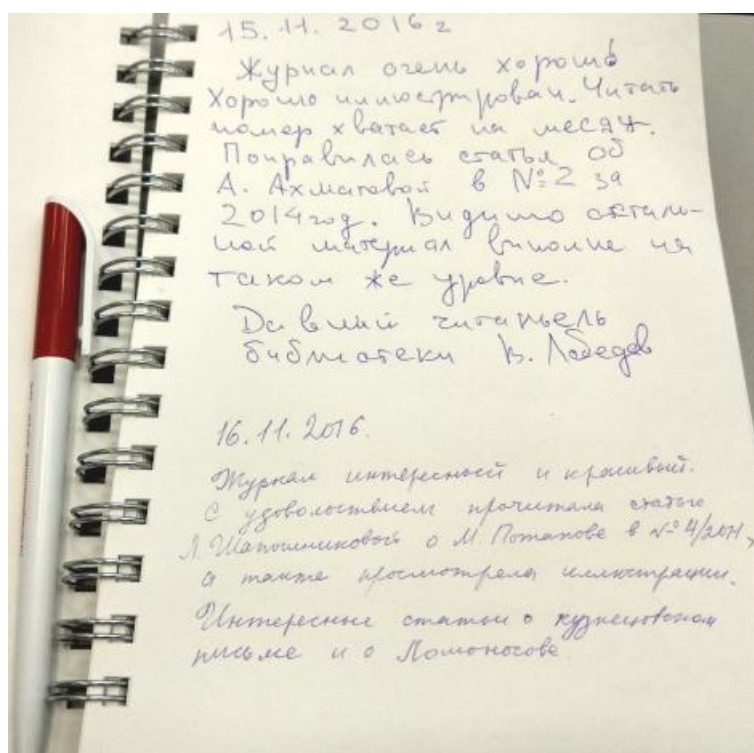 15.11.2016 г
Журнал очень хорошо
Хорошо иллюстрирован. Читать
номер хватает на месяц.
Понравилась статья об
А. Ахматовой в № 2 за
2014 год. Видимо осталь-
ной материал вполне на
таком же уровне.
Давний читатель
библиотеки В. Лебедев
16.11.2016.
Журнал интересный и красивый.
С удовольствием прочитала статью
Л. Шапошниковой о М. Потапове в № 4/2011,
а также просмотрела иллюстрации.
Интересные статьи о кузнецовском
письме и о Ломоносове.